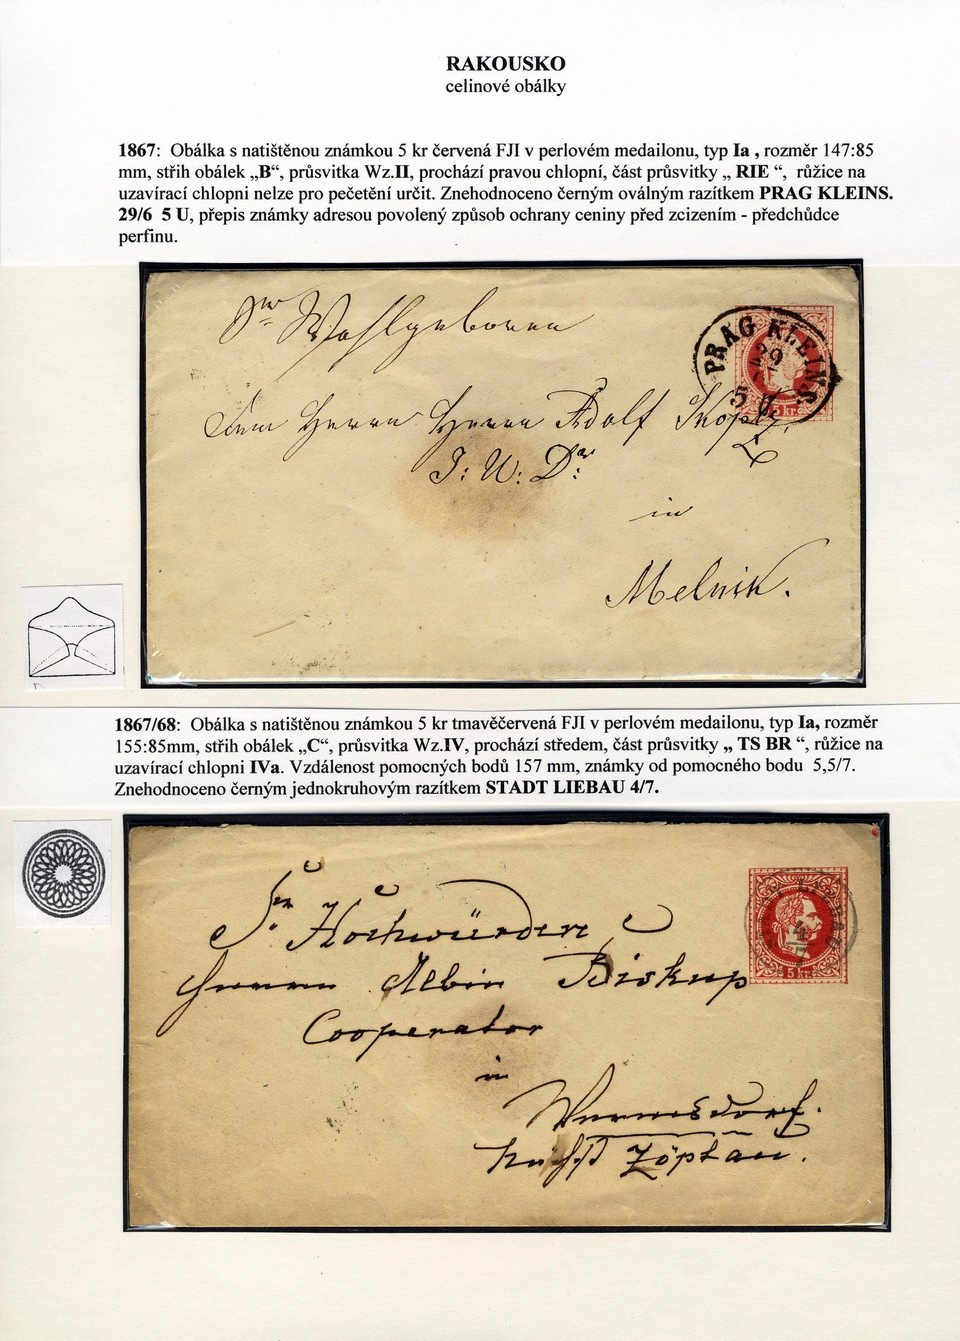 RAKOUSKO
celinové obálky
1867: Obálka s natištěnou známkou 5 kr červená FJI v perlovém medailonu, typ Ia , rozměr 147:85
mm, střih obálek „B“, průsvitka Wz.II, prochází pravou chlopní, část průsvitky „ RIE “, růžice na
uzavírací chlopni nelze pro pečetění určit. Znehodnoceno černým oválným razítkem PRAG KLEINS.
29/6 5 U, přepis známky adresou povolený způsob ochrany ceniny před zcizením - předchůdce
perfinu.
PRAG KLEINS.
29
5
5 kr.
Sr Wohlgeboren
Dem Herrn Herrn Adolf
J: U: Dr:
in
Melnik.
1867/68: Obálka s natištěnou známkou 5 kr tmavěčervená FJI v perlovém medailonu, typ Ia, rozměr
155:85mm, střih obálek „C“, průsvitka Wz.IV, prochází středem, část průsvitky „ TS BR “, růžice na
uzavírací chlopni IVa. Vzdálenost pomocných bodů 157 mm, známky od pomocného bodu 5,5/7.
Znehodnoceno černým jednokruhovým razítkem STADT LIEBAU 4/7.
4/7
5 kr.
Sr Hochwürden
Herrn Albin Biskup
Cooperator
in
Wermsdorf.
Zöptau.